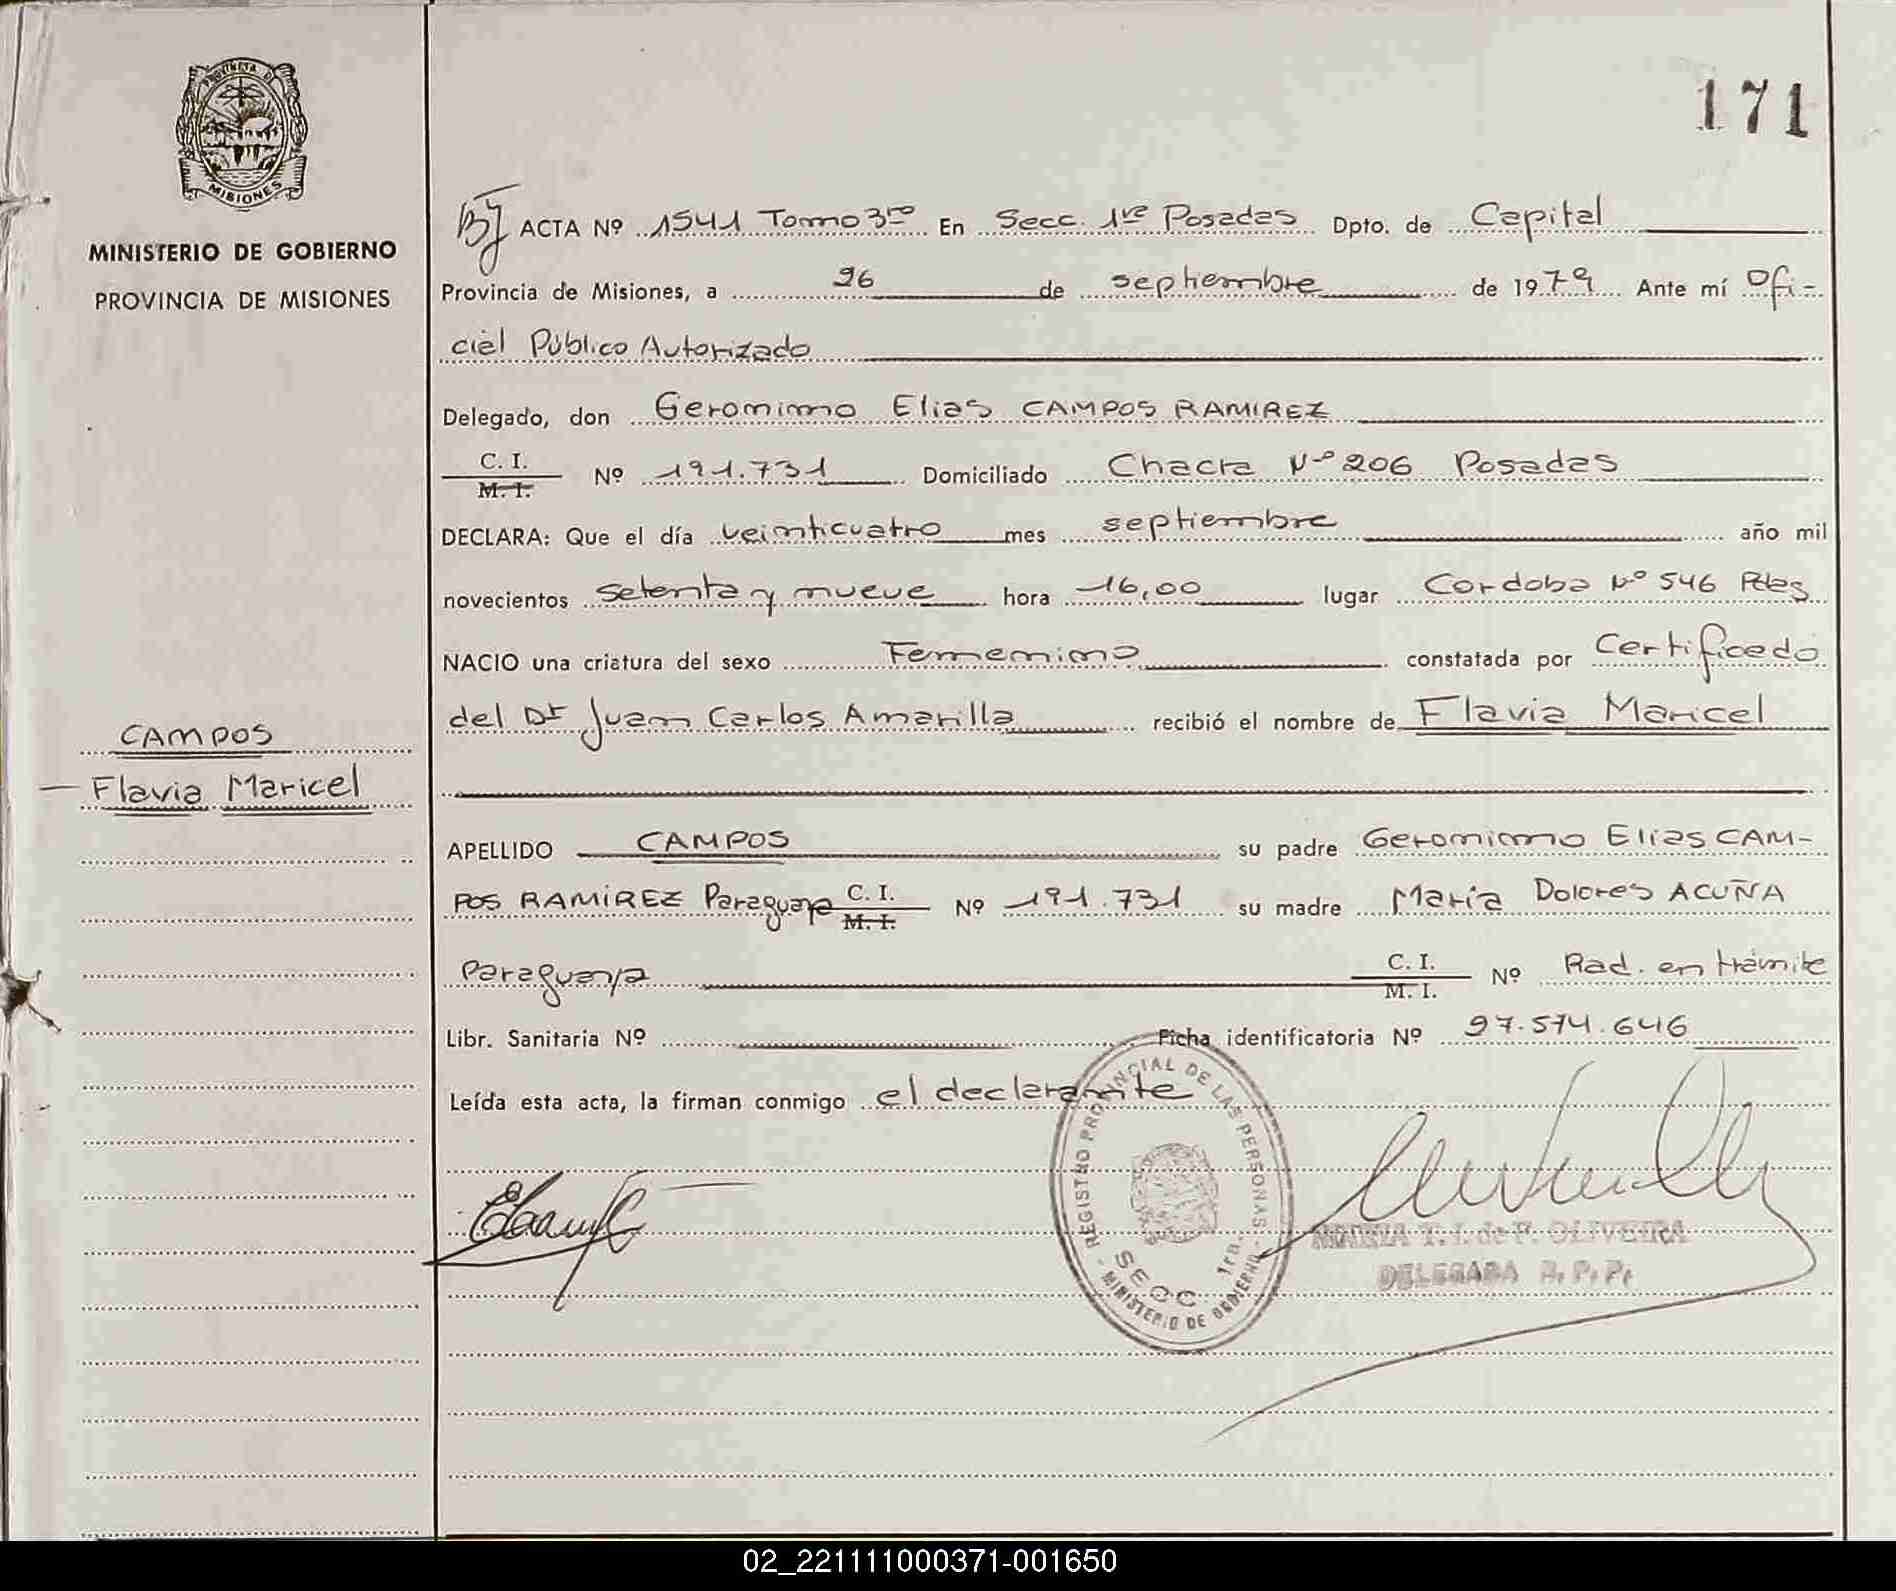 PROVINCIA DE
MISIONES
MINISTERIO DE GOBIERNO
PROVINCIA DE MISIONES
CAMPOS
Flavia Maricel
171
ACTA Nº 1541 Tomo 3ro En Secc. 1ra Posadas Dpto. de Capital
Provincia de Misiones, a 26 de septiembre de 1979 Ante mí Ofi-
cial Público Autorizado
Delegado, don Geronimo Elias CAMPOS RAMIREZ
C. I.
M. I. Nº 191.731 Domiciliado Chacra Nº 206 Posadas
DECLARA: Que el día veinticuatro mes septiembre año mil
novecientos setenta y nueve hora 16,00 lugar Cordoba Nº 546 Pdas
NACIO una criatura del sexo Femenino constatada por Certificado
del Dr Juan Carlos Amarilla recibió el nombre de Flavia Maricel
APELLIDO CAMPOS su padre Geronimo Elias CAM-
POS RAMIREZ Paraguaya C. I.
M. I. Nº 191.731 su madre María Dolores ACUÑA
Paraguaya C. I.
M. I. Nº Rad. en trámite
Libr. Sanitaria Nº Ficha identificatoria Nº 97.574.646
Leída esta acta, la firman conmigo el declarante
REGISTRO PROVINCIAL DE LAS PERSONAS
SECC. 1ra.
- MINISTERIO DE GOBIERNO -
MARIA T. I. de F. OLIVEIRA
DELEGADA R. P. P.
02_221111000371-001650